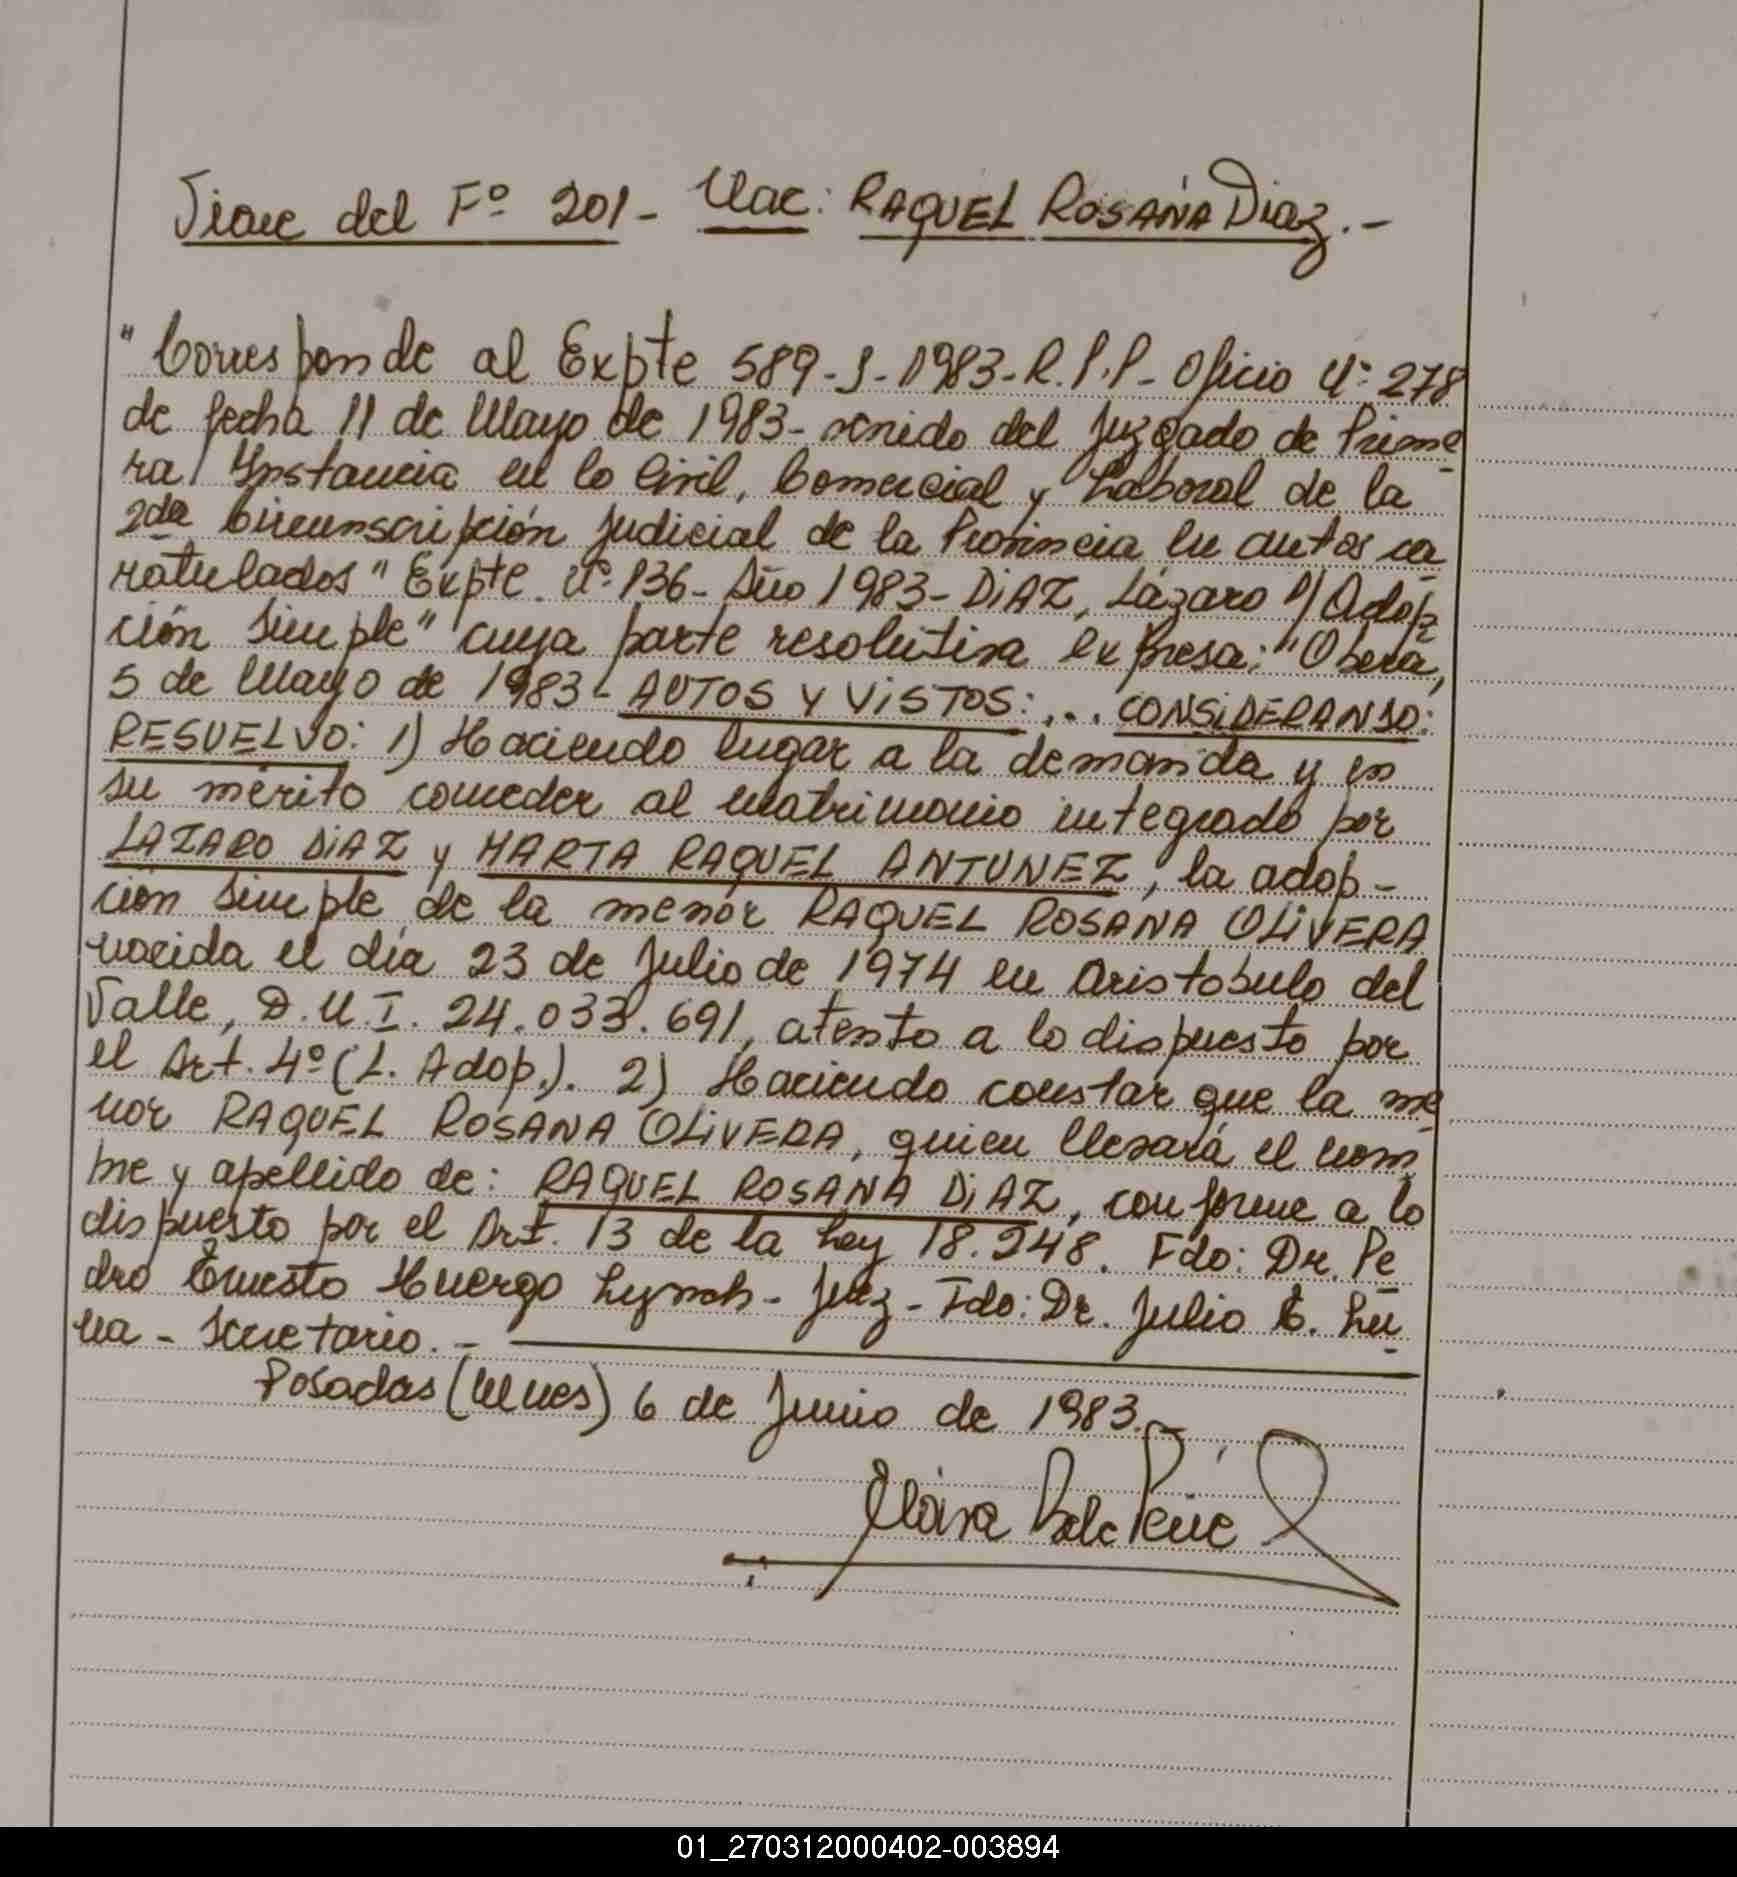 Viene del Fº 201 - Nac: RAQUEL ROSANA Diaz.-
"Corresponde al Expte 589-J-1983-R.P.P- Oficio Nº 278
de fecha 11 de Mayo de 1983- venido del Juzgado de Prime
ra Instancia en lo Civil, Comercial y Laboral de la
2da Circunscripción Judicial de la Provincia en autos ca
ratulados "Expte. Nº 136- Año 1983- DIAZ, Lázaro s/ Adop
ción Simple" cuya parte resolutiva expresa: "Oberá,
5 de Mayo de 1983- AUTOS Y VISTOS: ... CONSIDERANDO:
RESUELVO: 1) Haciendo lugar a la demanda y en
su mérito conceder al matrimonio integrado por
LAZARO DIAZ y MARTA RAQUEL ANTUNEZ, la adop-
ción simple de la menor RAQUEL ROSANA OLIVERA
nacida el día 23 de Julio de 1974 en Aristobulo del
Valle, D.N.I. 24.033.691, atento a lo dispuesto por
el Art. 4º (L. Adop.). 2) Haciendo constar que la me
nor RAQUEL ROSANA OLIVERA, quien llevará el nom
bre y apellido de: RAQUEL ROSANA DIAZ, conforme a lo
dispuesto por el Art. 13 de la Ley 18.248. Fdo: Dr. Pe
dro Ernesto Huergo Lynch - Juez - Fdo: Dr. Julio E. Lu
na - Secretario.-
Posadas (Mnes) 6 de Junio de 1983.-
01_270312000402-003894